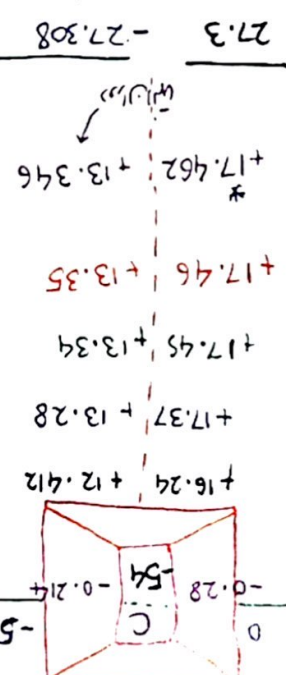 0 C -5
-0.28 -54 -0.214
+16.24 +12.412
+17.37 +13.28
+17.45 +13.34
+17.46 +13.35
*
+17.462 +13.346
27.3 -27.308